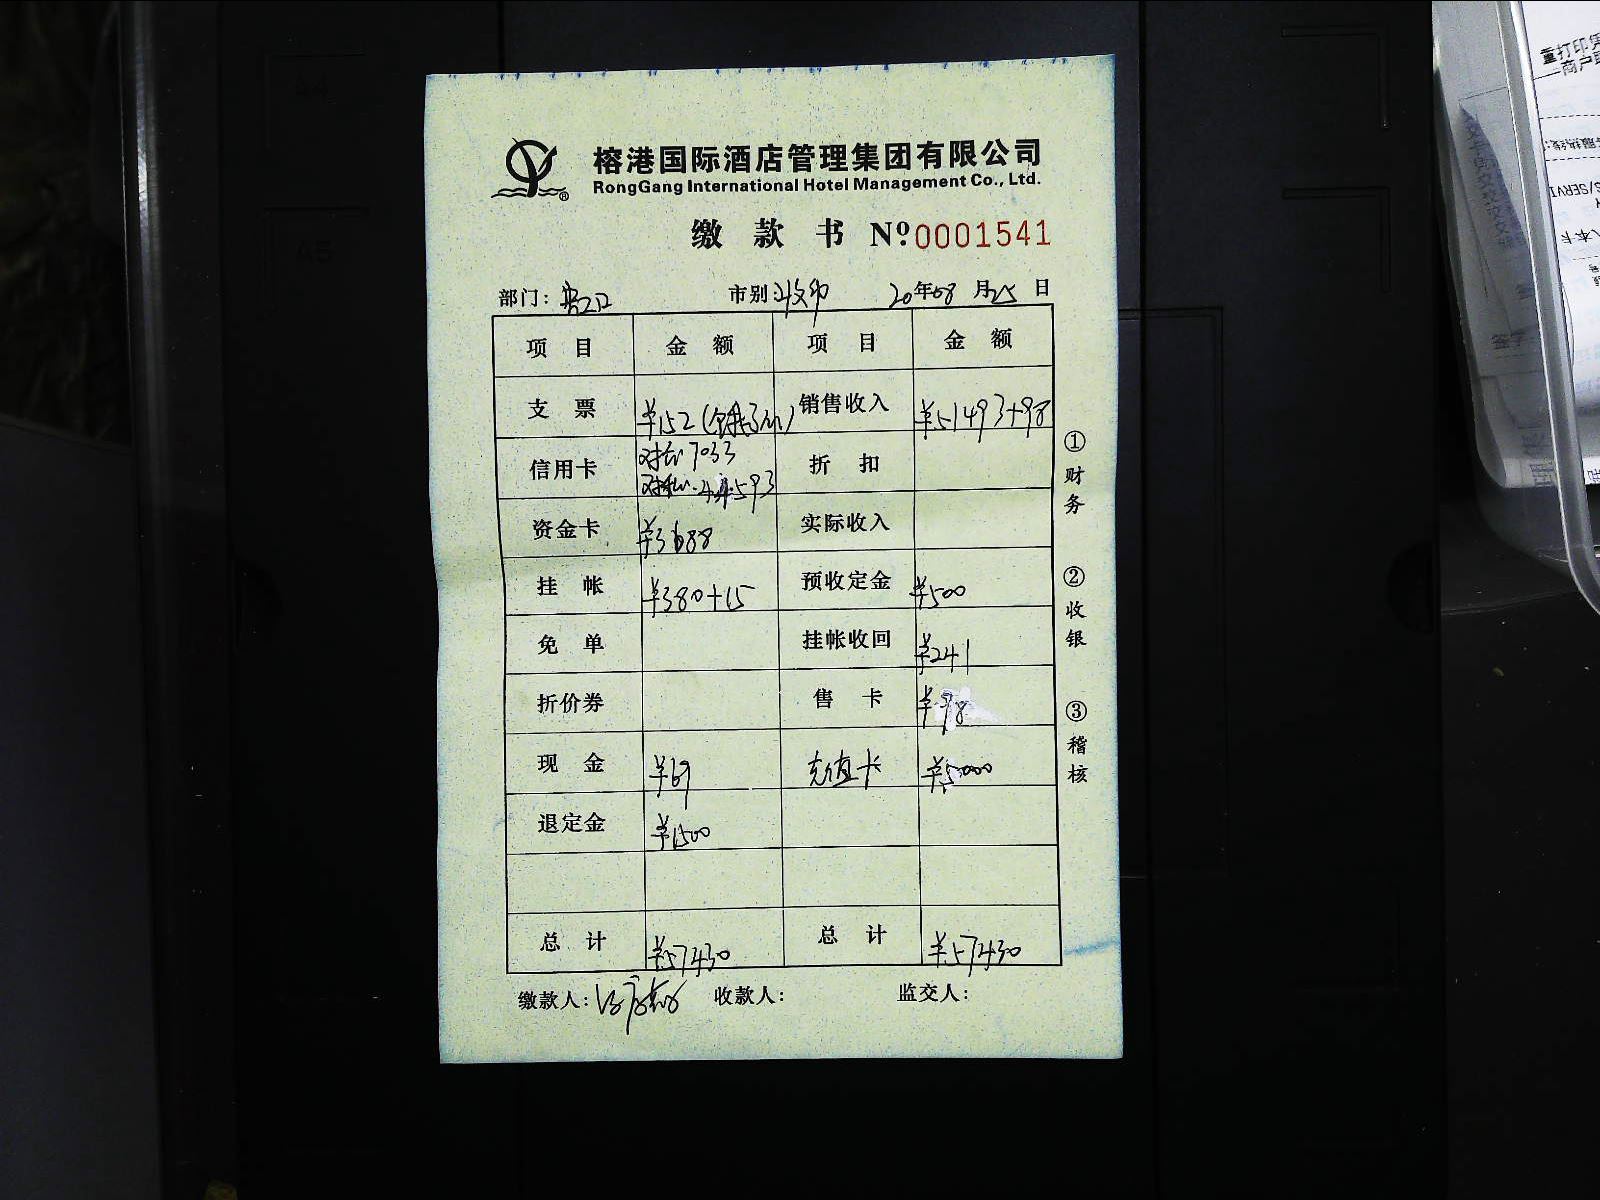 榕港国际酒店管理集团有限公司
RongGang International Hotel Management Co., Ltd.
缴款书 Nº 0001541
部门: 市别: 20年08月25日
项目 金额 项目 金额
支票 ¥152 销售收入 ¥51493+98
信用卡 对公 7033 折扣
对私 44593
资金卡 ¥3688 实际收入
挂帐 ¥380+15 预收定金 ¥500
免单 挂帐收回 ¥241
折价券 售卡 ¥98
现金 ¥69 充值卡 ¥5000
退定金 ¥1500
总计 ¥57430 总计 ¥57430
缴款人: 收款人: 监交人:
①财务
②收银
③稽核
重打印凭